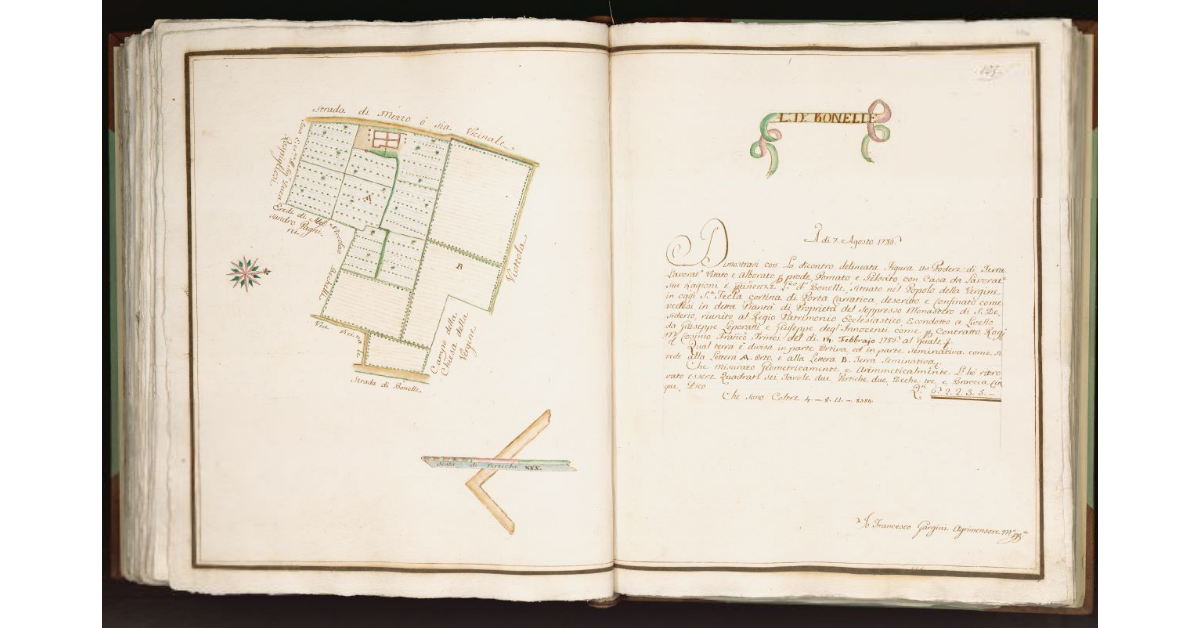 Strada di Mezzo ò sia Vicinale
Rospigliosi
Eredi di
sandro Paghi
ni
A
B
Viottola
Via
Campo della
Chiesa della
Vergine
Strada di Bonelle
Scala di Pertiche XXX.
L.D. BONELLE
A di 7. Agosto 1786
Dimostrasi con la dicontro delineata figura un Podere di Terra
Lavorat. Vitato e Alborato p. prode, Pomato e Gelsato con Casa da Lavorat.
sue Ragioni e L.D. Bonelle, situato nel Popolo della Vergine
in oggi S. Tecla cortina di Porta Carratica descritto e confinato come
vedesi in detta Pianta di Proprietà del Soppresso Monastero di S. De
siderio, riunito al Regio Patrimonio Ecclesiastico, Econdotto a Livello
da Giuseppe Leporatti e Giuseppe degl' Innocenti come p. Contratto Rog.
M. Cosimo Franco Trinci del dì 14. Febbrajo 1785 al quale
Qual terra è divisa in parte Ortiva, ed in parte Seminativa come si
vede alla Lettera A. Orto, e alla Lettera B. Terra Seminativa
Che Misurato Geometricamente e Arimmeticalmente L'hò ritro
vato essere Quadrati Sei Tavole due, Pertiche due, Deche tre, e Braccia Cin
que, Dico
Che sono Coltre 4 - 2
Io Francesco Gargini Agrimensore M.